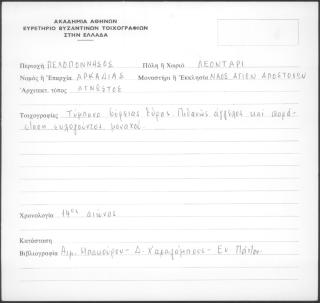 ΑΚΑΔΗΜΙΑ ΑΘΗΝΩΝ
ΕΥΡΕΤΗΡΙΟ ΒΥΖΑΝΤΙΝΩΝ ΤΟΙΧΟΓΡΑΦΙΩΝ
ΣΤΗΝ ΕΛΛΑΔΑ
Περιοχή ΠΕΛΟΠΟΝΝΗΣΟΣ Πόλη ἤ Χωριό ΛΕΟΝΤΑΡΙ
Νομός ἤ Ἐπαρχία ΑΡΚΑΔΙΑΣ Μοναστήρι ἤ Ἐκκλησία ΝΑΟΣ ΑΓΙΩΝ ΑΠΟΣΤΟΛΩΝ
Ἀρχιτεκτ. τύπος ΑΓΝΩΣΤΟΣ
Τοιχογραφίες Τύμπανο βόρειας θύρας Πιθανώς άγγελος και παρά-
σταση ευλογούντος μοναχού.
Χρονολογία 14ος αιώνας
Κατάσταση
Βιβλιογραφία Αιμ. Μπακούρου - Δ. Χαραλάμπους - Ευ